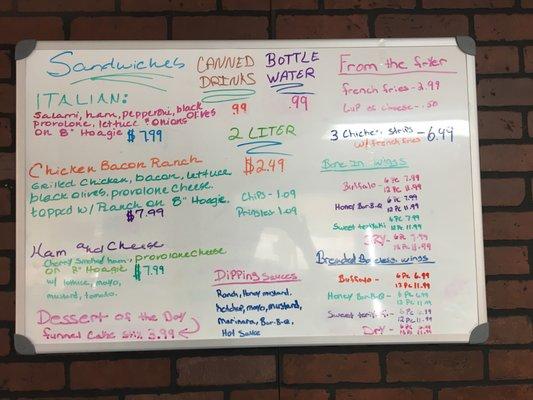 Sandwiches
ITALIAN:
Salami, ham, pepperoni, black olives
provolone, lettuce & onions
on 8" Hoagie $7.99
Chicken Bacon Ranch
Grilled Chicken, bacon, lettuce
black olives, provolone cheese
topped w/ Ranch on 8" Hoagie
$7.99
Ham and Cheese
Cherry Smoked ham, provolone cheese
on 8" Hoagie $7.99
w/ lettuce, mayo,
mustard, tomato.
Dessert of the Day
funnel cake 3.99
CANNED
DRINKS
.99
BOTTLE
WATER
.99
2 LITER
$2.49
Chips - 1.09
Pringles 1.09
Dipping Sauces
Ranch, Honey mustard,
ketchup, mayo, mustard,
marinara, Bar-B-Q,
Hot Sauce
From the fryer
french fries - 2.99
cup of cheese - .50
3 Chicken strips - 6.49
w/ french fries
Bone In wings
Buffalo - 6 Pc 7.99
12 Pc 11.99
Honey Bar-B-Q 6 Pc 7.99
12 Pc 11.99
Sweet teriyaki 6 Pc 7.99
12 Pc 11.99
DRY - 6 Pc 7.99
12 Pc 11.99
Breaded Boneless wings
Buffalo - 6 Pc 6.99
12 Pc 11.99
Honey Bar-B-Q - 6 Pc 6.99
12 Pc 11.99
Sweet teriyaki - 6 Pc 6.99
12 Pc 11.99
Dry - 6 Pc 6.99
12 Pc 11.99